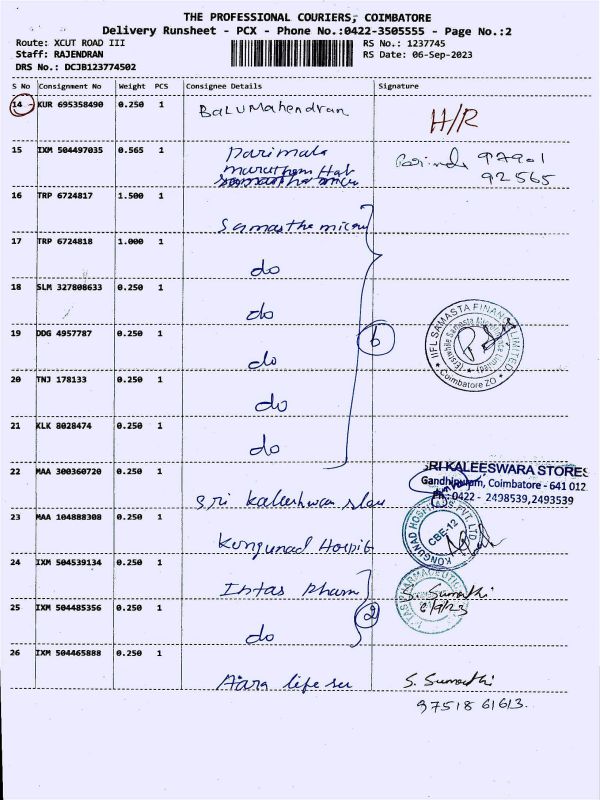 THE PROFESSIONAL COURIERS, COIMBATORE
Delivery Runsheet - PCX - Phone No.:0422-3505555 - Page No.:2
Route: XCUT ROAD III RS No.: 1237745
Staff: RAJENDRAN RS Date: 06-Sep-2023
DRS No.: DCJB123774502
S No Consignment No Weight PCS Consignee Details Signature
14 KUR 695358490 0.250 1 Balumahendran H/R
15 IXM 504497035 0.565 1 Parimala
97901
92565
16 TRP 6724817 1.500 1 Samastha micro
17 TRP 6724818 1.000 1 do
18 SLM 327808633 0.250 1 do
19 DDG 4957787 0.250 1 do 6
IIFL SAMASTA FINANCE LIMITED
Coimbatore ZO
20 TNJ 178133 0.250 1 do
21 KLK 8028474 0.250 1 do
22 MAA 300360720 0.250 1 Sri Kaleshwara
SRI KALEESWARA STORES
Gandhipuram, Coimbatore - 641 012
PH.: 0422 - 2498539,2493539
23 MAA 104888308 0.250 1 Kongunad Hospit
KONGUNAD HOSPITALS PVT. LTD.
CBE-12
24 IXM 504539134 0.250 1 Intas Pharm
S. Sumathi
6/9/23
25 IXM 504485356 0.250 1 do 2
26 IXM 504465888 0.250 1 Aara life ser S. Sumathi
97518 61613.